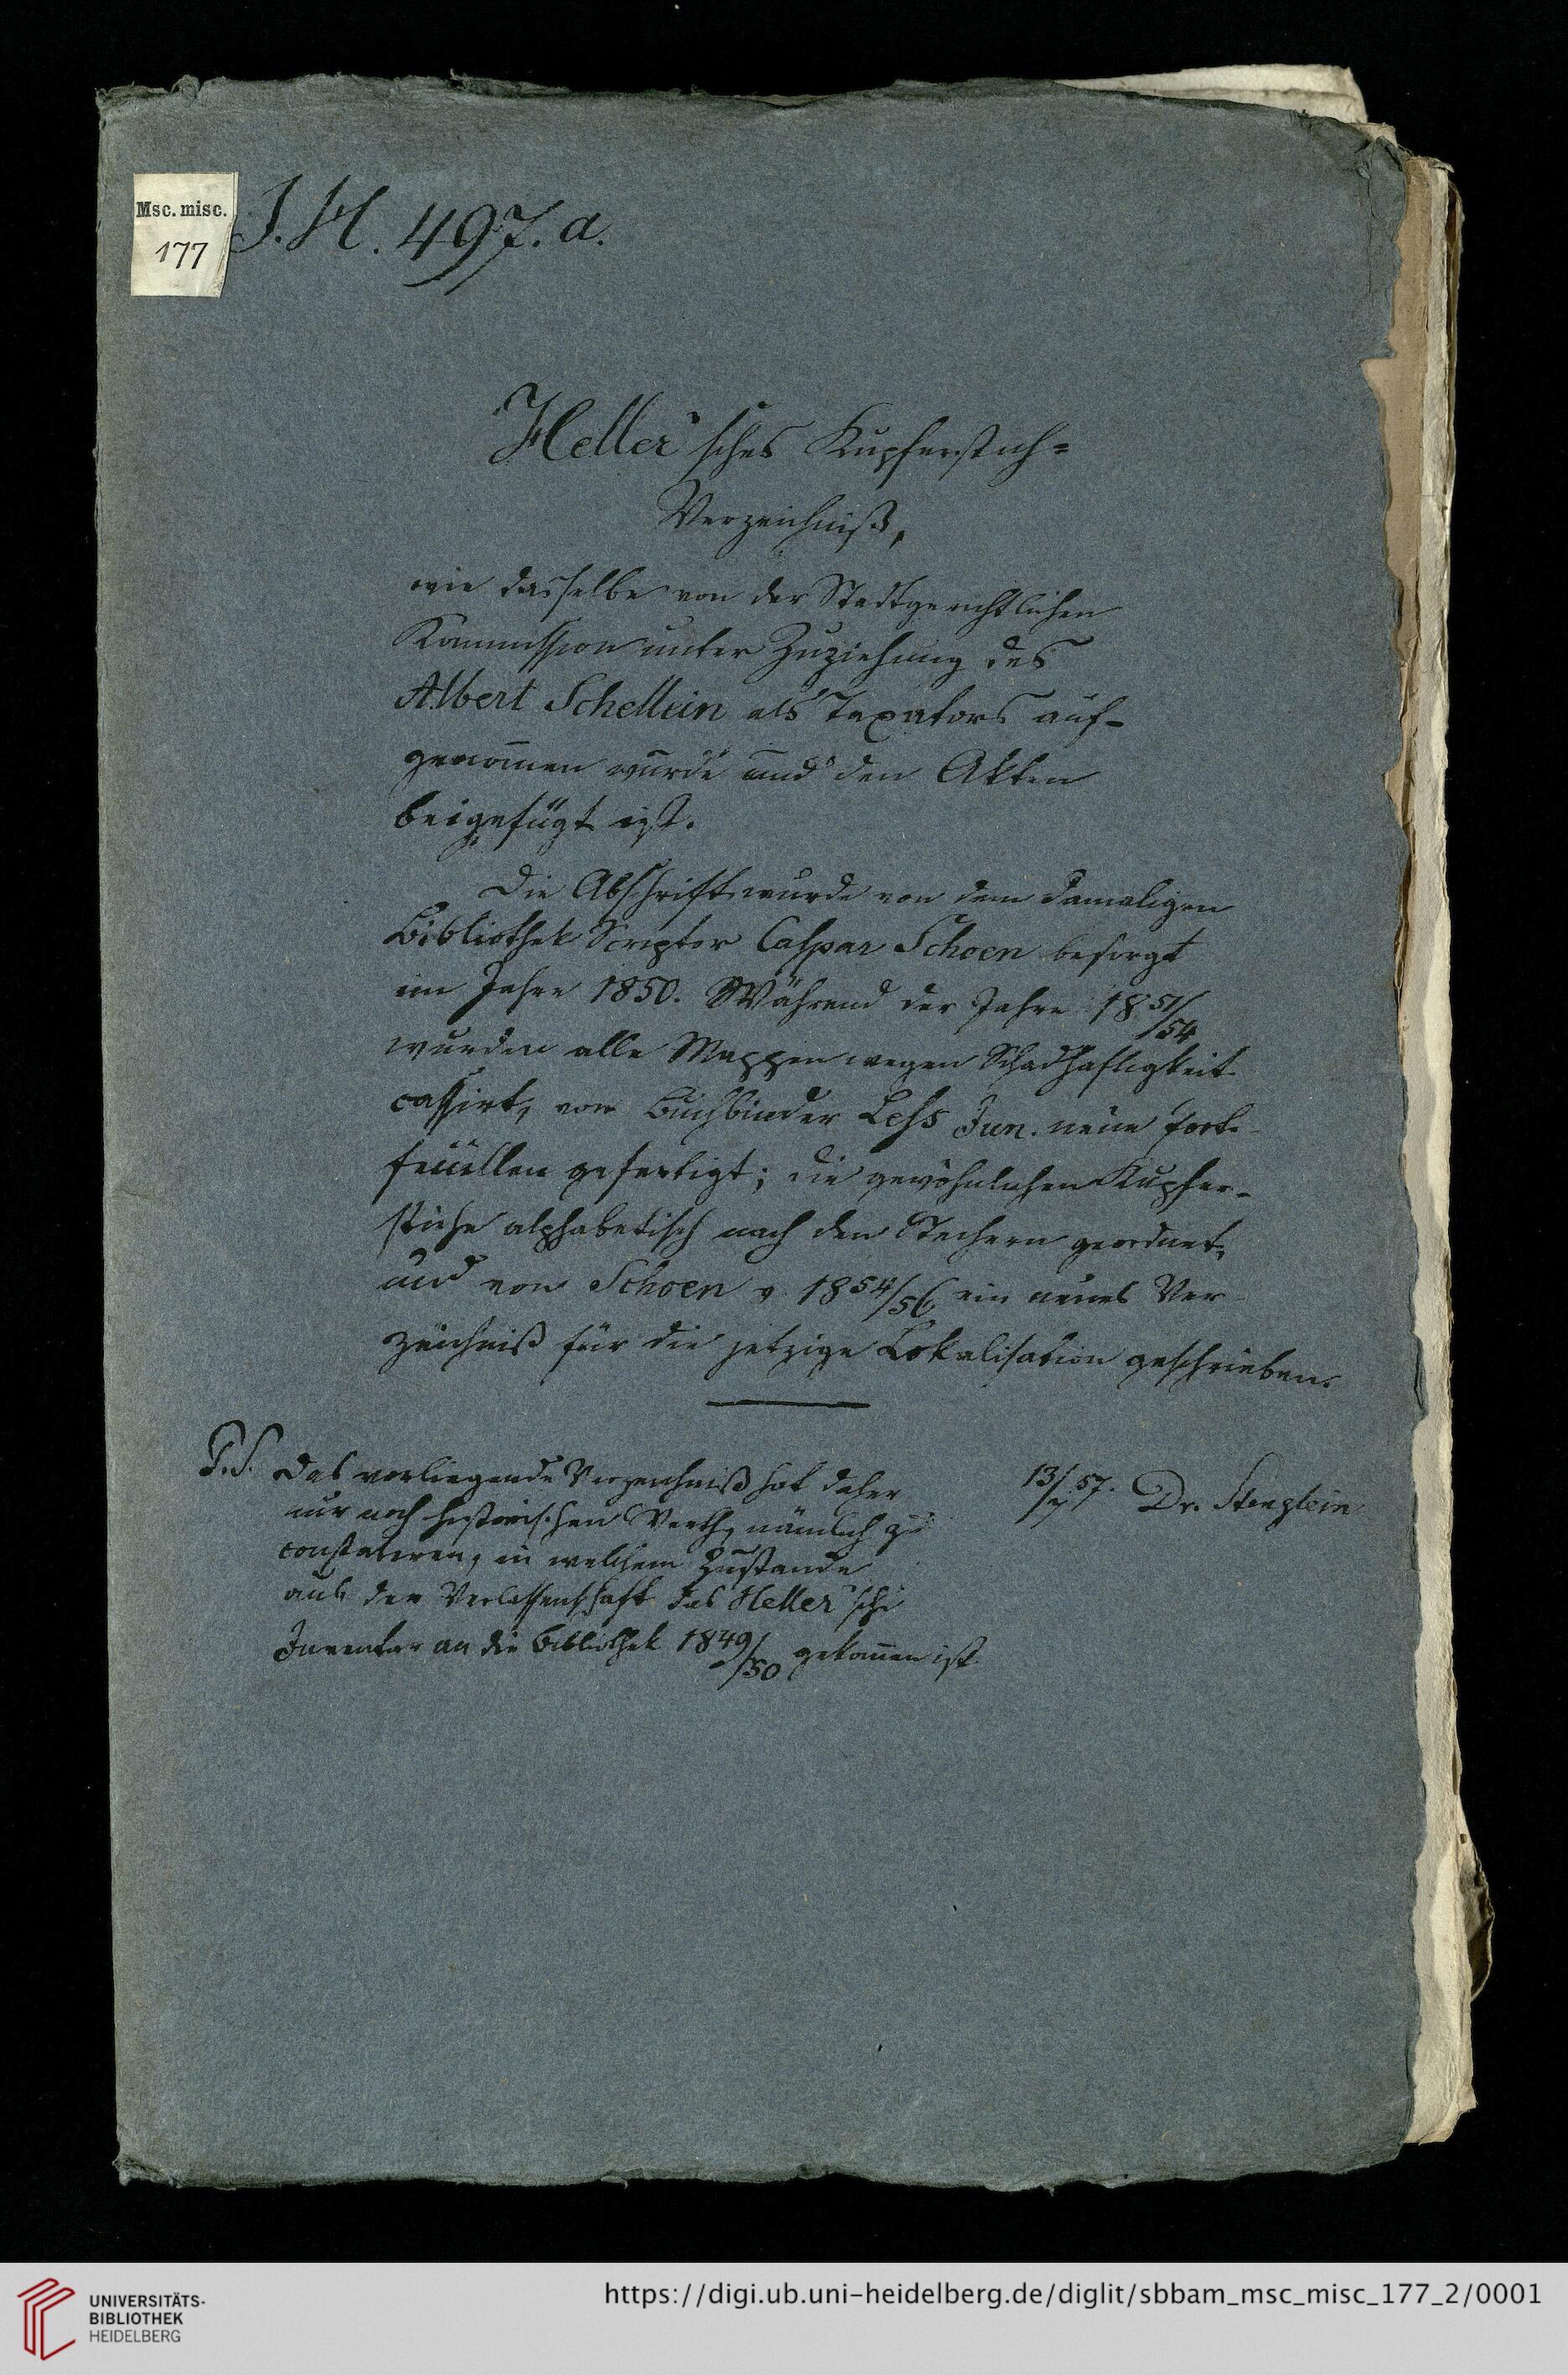 Msc. misc.
177
J. H. 497. a.
Heller'sches Kupferstich=
Verzeichniß,
wie dasselbe von der Stadtgerichtlichen
Kommission unter Zuziehung des
Albert Schellein als Taxators auf-
genom̄en wurde und den Akten
beigefügt ist.
Die Abschrift wurde von dem damaligen
Bibliothek Scriptor Caspar Schoen besorgt
im Jahre 1850. Während der Jahre 1851/54
wurden alle Mappen wegen Schadhaftigkeit
cassirt, vom Buchbinder Less Jun. neue Porte-
feuillen gefertigt; die gewöhnlichen Kupfer-
stiche alphabetisch nach den Stechern geordnet,
und von Schoen v. 1854/56 ein neues Ver-
zeichniß für die jetzige Lokalisation geschrieben.
P.S. Das vorliegende Verzeichniß hat daher
nur noch historischen Werth, nämlich zu
constatiren, in welchem Zustande
aus der Verlassenschaft das Heller'sche
Inventar an die Bibliothek 1849/50 gekom̄en ist
13/ 57. Dr. Stenglein
UNIVERSITÄTS-
BIBLIOTHEK
HEIDELBERG
https://digi.ub.uni-heidelberg.de/diglit/sbbam_msc_misc_177_2/0001